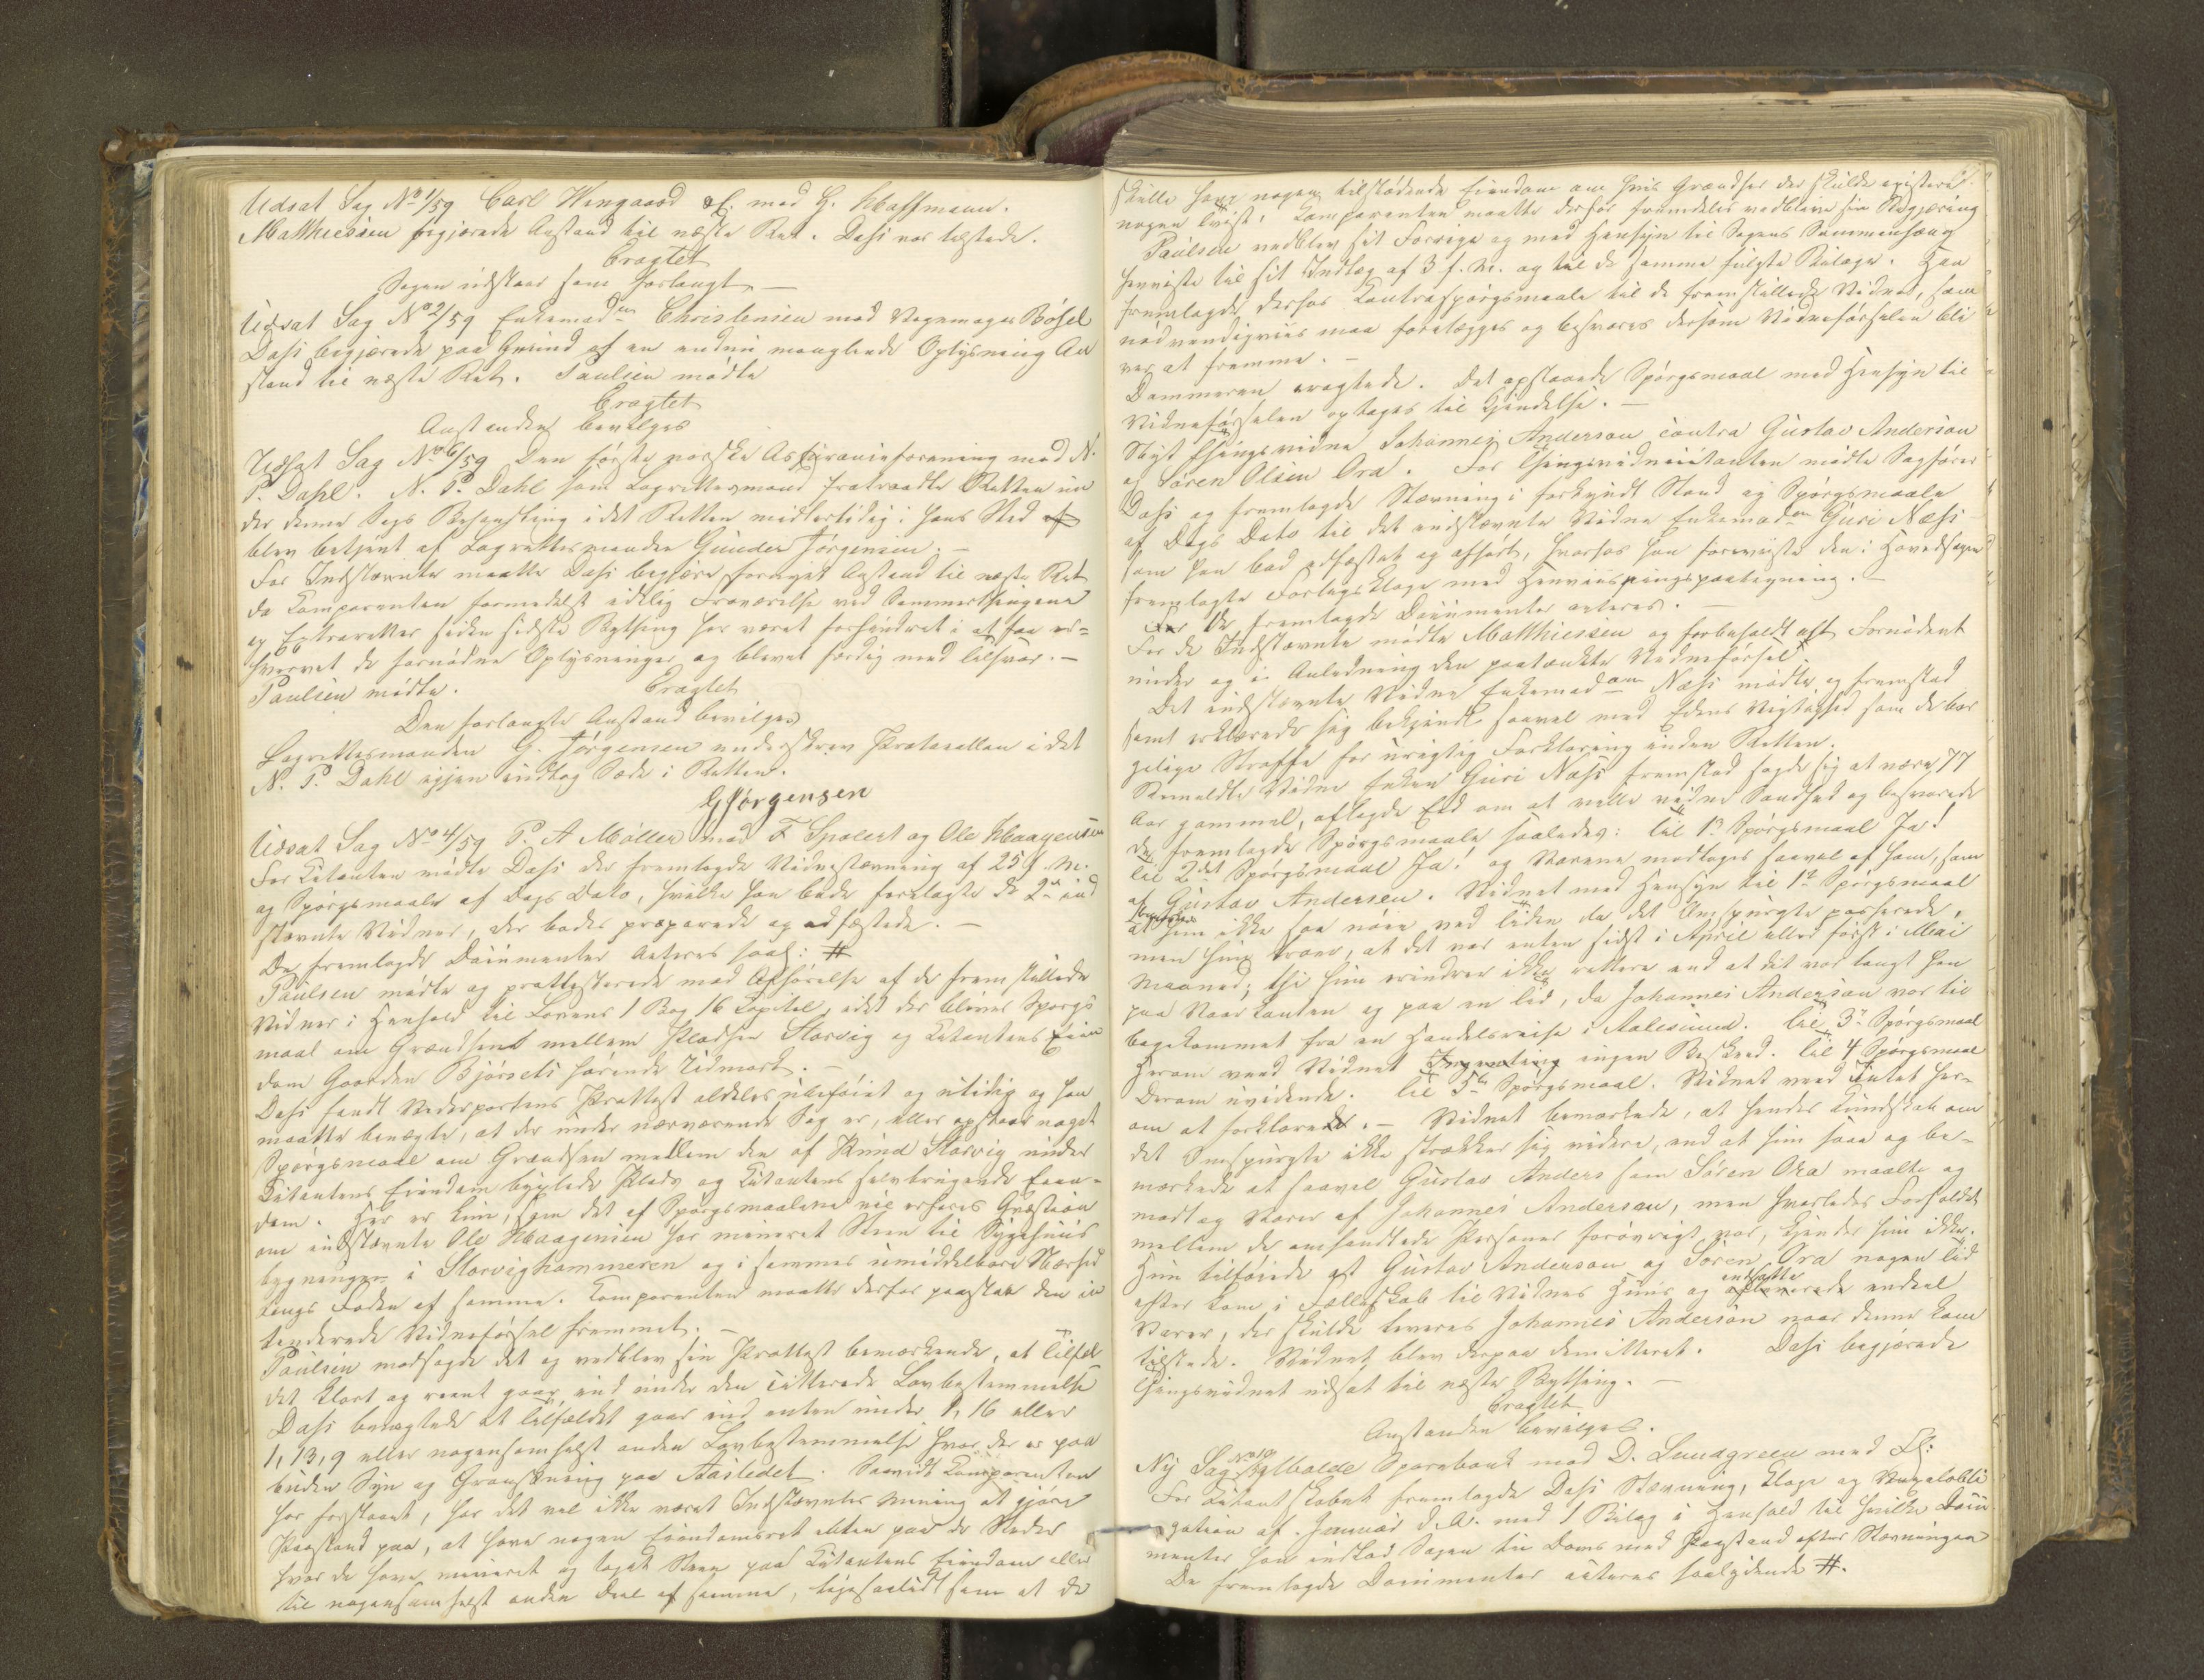 Udsat Sag No 1/59 Carl Wingaard ctr. med H. Hoffmann.
Matthiessen begjærede Anstand til næste Ret. Dahs var tilstede.
Eragtet
Sagen udstaar som forlangt. —
Udsat Sag No 2/59 Enkemadm Christensen mod Vognmager Bösel
Dahs begjærede paa Grund af en endnu manglende Oplysning An
stand til næste Ret. Paulsen mødte
Eragtet
Anstanden bevilges
Udsat Sag No 6/59 Den første norske Assuranceforening mod N.
P. Dahl. N. P. Dahl som Lagrettesmand fratraadte Retten un
der denne Sags Behandling idet Retten midlertidig i hans Sted
blev betjent af Lagrettesmanden Gunder Jørgensen. —
For Indstævnte maatte Dahs begjære fornyet Anstand til næste Ret
da Comparenten formedelst idelig Fraværelse ved Sommerthingene
og Extraretter siden sidste Bything har været forhindret i at faa er=
hvervet de fornødne Oplysninger og blevet færdig med Tilsvar. —
Paulsen mødte. Eragtet
Den forlangte Anstand bevilges
Lagrettesmanden G. Jørgensen underskrev Protocollen idet
N. P. Dahl igjen indtog Sæde i Retten.
GJørgensen
Udsat Sag No 4/59 P. A Møller mod F Spolert og Ole Haagensen
For Citanten mødte Dahs der fremlagde Vidnestævning af 25 f. M.
og Spørgsmaale af Dags Dato, hvilke han bad forelagte de 2de ind
stævnte Vidner, der bades præparerede og edfæstede. —
De fremlagde Documenter acteres saal: #
Paulsen mødte og protesterede mod Afhørelse af de fremstillede
Vidner i Henhold til Lovens 1 Bog 16 Capitel, idet der bliver Spørgs
maal om Grændserne mellem Pladsen Storvig og Citantens Eien
dom Gaarden Bjørsets hørende Udmark. —
Dahs fandt Vederpartens Protest aldeles ubeføiet og utidig og han
maatte benægte, at der under nærværende Sag er, eller opstaar noget
Spørgsmaal om Grændsen mellem den af Knud Storvig under
Citantens Eiendom byxlede Plads og Citantens selvbrugende Eien=
dom. Her er kun, som det af Spørgsmaalene vil erfares Qvæstion
om indstævnte Ole Haagensen har mineret Steen til Sygehuus
bygningen i Storvighammeren og i sammes umiddelbare Nærhed
langs Foden af samme. Comparenten maatte derfor paastaa den in
tenderede Vidneførsel fremmet. —
Paulsen modsagde det og vedblev sin Protest bemærkende, at Tilfæl
det klart og reent gaar ind under den citerede Lovbestemmelse
Dahs benægtede at Tilfældet gaar ind enten under 1, 16 eller
1, 13, 9 eller nogensomhelst anden Lovbestemmelse hvor der er paa
buden Syn og Granskning paa Aastedet. Saavidt Comparenten
har forstaaet, har det vel ikke været Indstævntes Mening at gjøre
Paastand paa, at have nogen Eiendomsret enten paa de Steder
hvor de have mineret og taget Steen paa Citantens Eiendom eller
til nogensomhelst anden Deel af samme, ligesaalidt som at de
skulle have nogen tilstødende Eiendom om hvis Grændser der skulde existere
nogen Tvist. Comparenten maatte derfor fremdeles vedblive sin Begjæring
Paulsen vedblev sit Forrige og med Hensyn til Sagens Sammenhæng
henviste til sit Indlæg af 3 f. M. og til de samme fulgte Bilage. Han
fremlagde derfor Contraspørgsmaale til de fremstillede Vidner, som
nødvendigviis maa forelægges og besvares dersom Vidneførselen bli
ver at fremme. —
Dommeren eragtede. Det opstaaede Spørgsmaal med Hensyn til
Vidneførselen optages til Kjendelse. —
Nyt Thingsvidne Johannes Anderson contra Gustav Anderson
og Søren Olsen Ora. For Thingsvidnecitanten mødte Sagfører
Dahs og fremlagde Stævning i forkyndt Stand og Spørgsmaale
af Dags Dato til det indstævnte Vidne Enkemadam Guri Næss
som han bad edfæstet og afhørt, hvorhos han foreviste den i Hovedsagen
fremlagte Forligsklage med Henviisningspaategning. —
De fremlagde Documenter acteres. —
For de Indstævnte mødte Matthiessen og forbeholdt alt Fornødent
under og i Anledning den paatænkte Vidneførsel.
Det indstævnte Vidne Enkemadam Næss mødte og fremstod
samt erklærede sig bekjendt saavel med Edens Vigtighed som de bor
gelige Straffe for urigtig Forklaring inden Retten.
Bemeldte Vidne Enken Guri Næss fremstod sagde sig at være 77
Aar gammel, aflagde Eed om at ville vidne Sandhed og besvarede
de fremlagde Spørgsmaale saaledes: Til 1ste Spørgsmaal Ja!
Til 2det Spørgsmaal Ja! og Varerne modtoges saavel af ham, som
af Gustav Andersen. Vidnet med Hensyn til 1ste Spørgsmaal
at hun ikke saa nøie ved Tiden da det Omspurgte passerede,
men hun troer, at det var enten sidst i April eller først i Mai
Maaned; thi hun erindrer ikke rettere end at det var langt hen
paa Vaarkanten og paa en Tid, da Johannes Anderson var til
bagekommet fra en Handelsreise i Aalesund. Til 3de Spørgsmaal
Herom veed Vidnet ingen Besked. Til 4 Spørgsmaal
Derom uvidende. Til 5te Spørgsmaal. Vidnet veed Intet her-
om at forklare. — Vidnet bemærkede, at hendes Kundskab om
det Omspurgte ikke strækker sig videre, end at hun saae og be-
mærkede at saavel Gustav Anders som Søren Ora maalte og
modtog Varer af Johannes Anderson, men hvorledes Forholdet
mellem de omhandlede Personer forøvrigt var, kjender hun ikke.
Hun tilføiede at Gustav Anderson og Søren Ora nogen Tid
efter kom i Fællesskab til Vidnets Huus og indsatte endeel
Varer, der skulde leveres Johannes Anderson naar denne kom
tilstede. Vidnet blev derpaa demitteret. Dahs begjærede
Thingsvidnet udsat til næste Bything. —
Eragtet
Anstanden bevilges.
Ny Sag Molde Sparebank mod D. Lundgreen med Fl:
For Citantskabet fremlagde Dahs Stævning, Klage og Vexelobli
gation af Januar d. A. med 1 Bilag i Henhold til hvilke Docu
menter han indlod Sagen til Doms med Paastand efter Stævningen
De fremlagde Documenter acteres saalydende #.